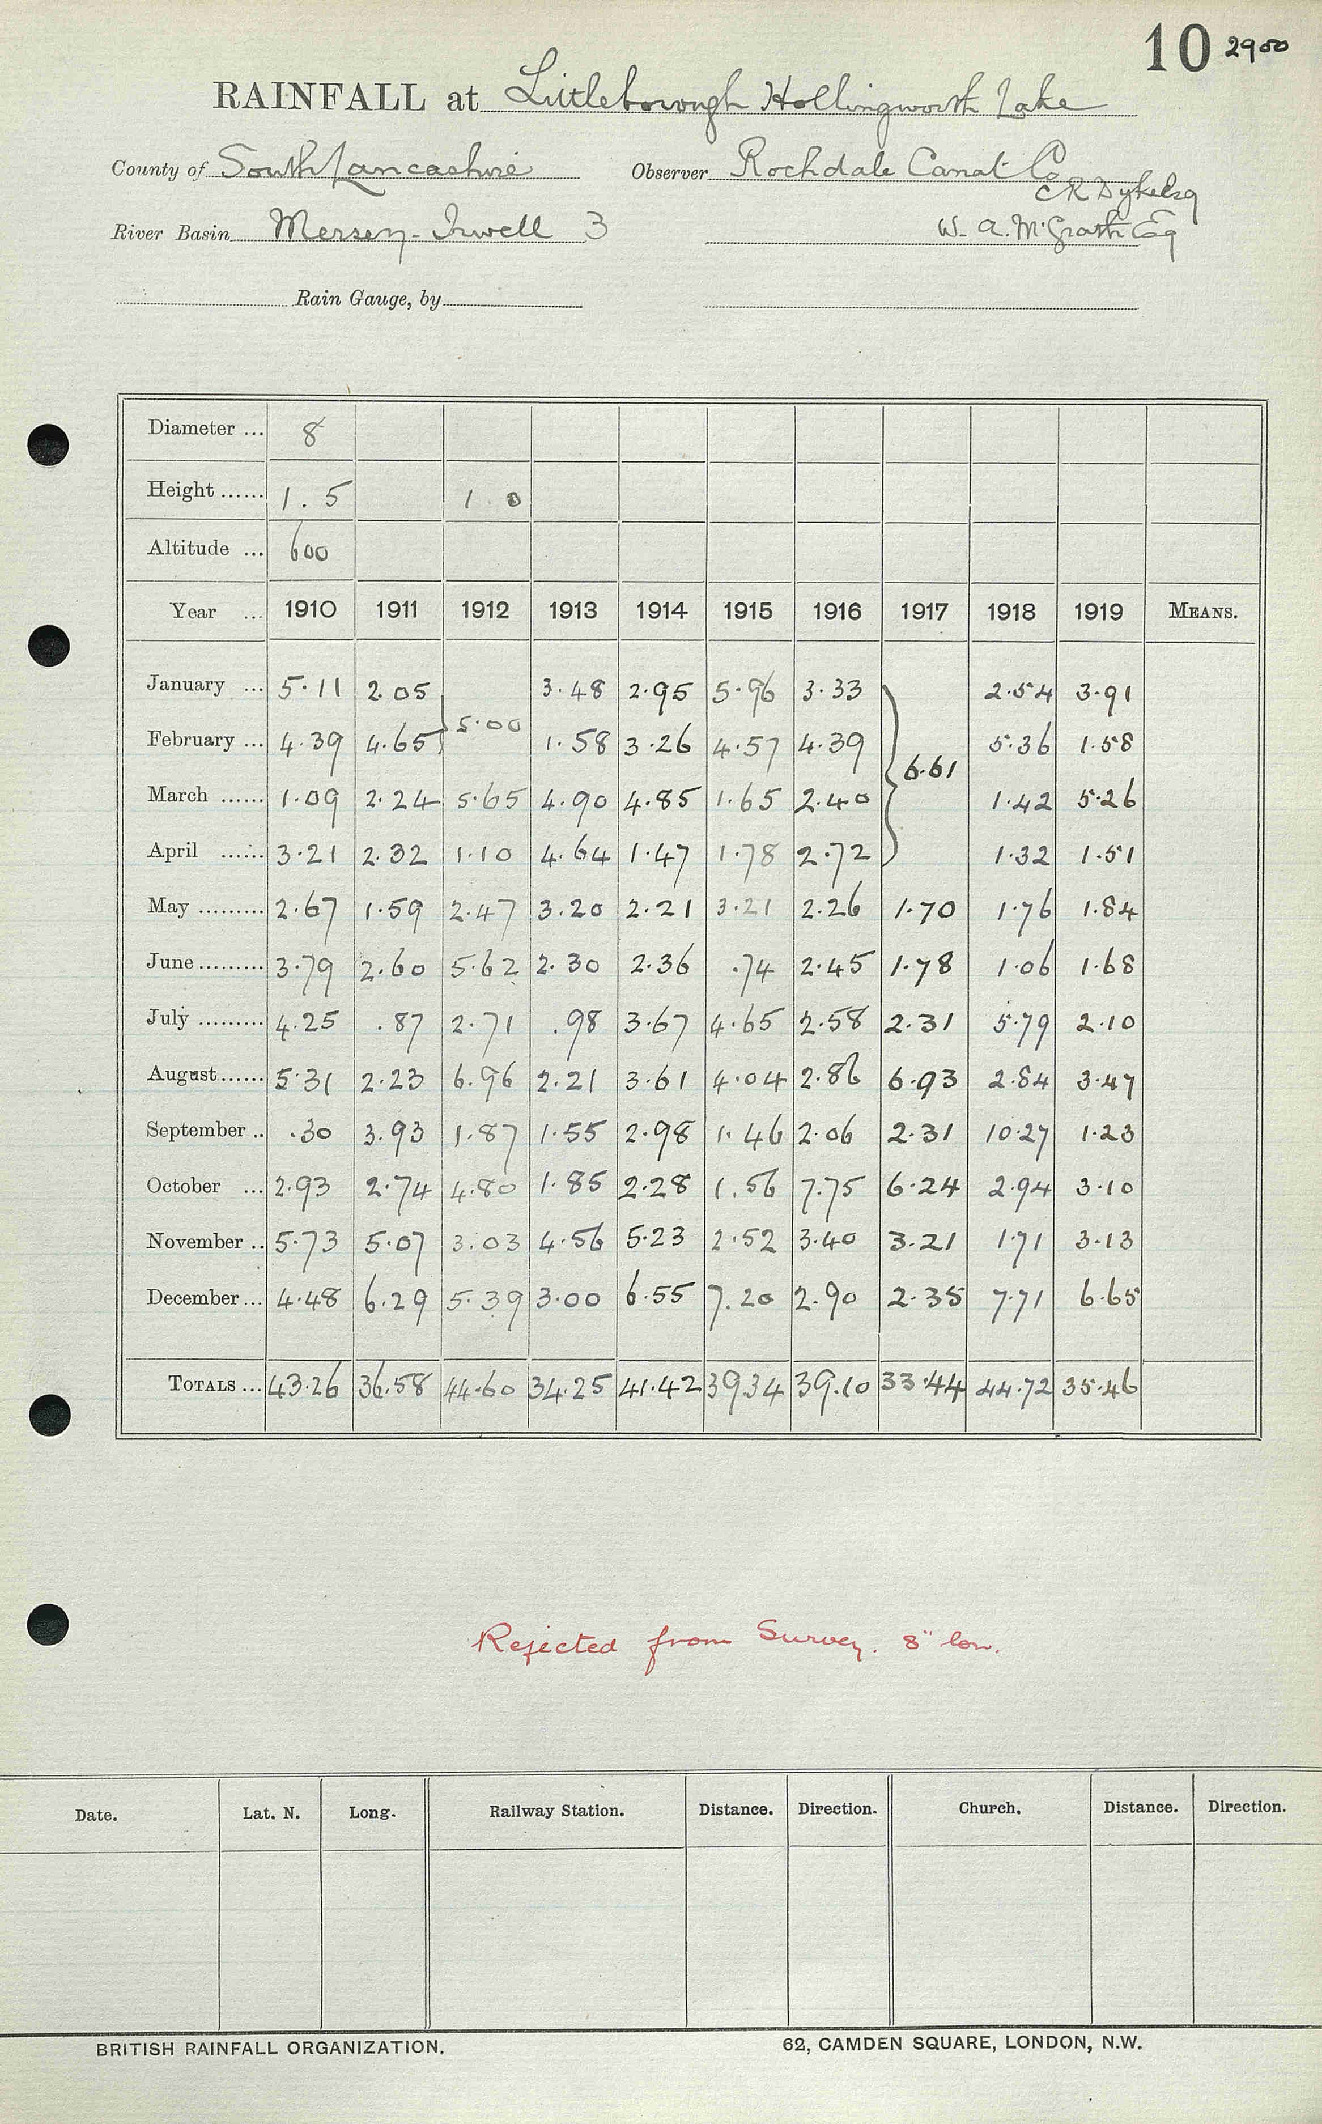 10 2900
RAINFALL at Littleborough Hollingworth Lake
County of South Lancashire Observer Rochdale Canal Co
C R Dyke Esq
River Basin Mersey-Irwell 3 W. A. McGrath Esq
Rain Gauge, by
Diameter ... 8
Height ...... 1.5 1 0
Altitude ... 600
Year ... 1910 1911 1912 1913 1914 1915 1916 1917 1918 1919 MEANS.
January ... 5.11 2.05 3.48 2.95 5.96 3.33 2.54 3.91
5.00
February ... 4.39 4.65 1.58 3.26 4.57 4.39 5.36 1.58
6.61
March ...... 1.09 2.24 5.65 4.90 4.85 1.65 2.40 1.42 5.26
April ...... 3.21 2.32 1.10 4.64 1.47 1.78 2.72 1.32 1.51
May ......... 2.67 1.59 2.47 3.20 2.21 3.21 2.26 1.70 1.76 1.84
June ......... 3.79 2.60 5.62 2.30 2.36 .74 2.45 1.78 1.06 1.68
July ......... 4.25 .87 2.71 .98 3.67 4.65 2.58 2.31 5.79 2.10
August ...... 5.31 2.23 6.96 2.21 3.61 4.04 2.86 6.93 2.84 3.47
September .. .30 3.93 1.87 1.55 2.98 1.46 2.06 2.31 10.27 1.23
October ... 2.93 2.74 4.80 1.85 2.28 1.56 7.75 6.24 2.94 3.10
November .. 5.73 5.07 3.03 4.56 5.23 2.52 3.40 3.21 1.71 3.13
December ... 4.48 6.29 5.39 3.00 6.55 7.20 2.90 2.35 7.71 6.65
TOTALS ... 43.26 36.58 44.60 34.25 41.42 39.34 39.10 33.44 44.72 35.46
Rejected from Survey. 8" low.
Date. Lat. N. Long. Railway Station. Distance. Direction. Church. Distance. Direction.
BRITISH RAINFALL ORGANIZATION. 62, CAMDEN SQUARE, LONDON, N.W.